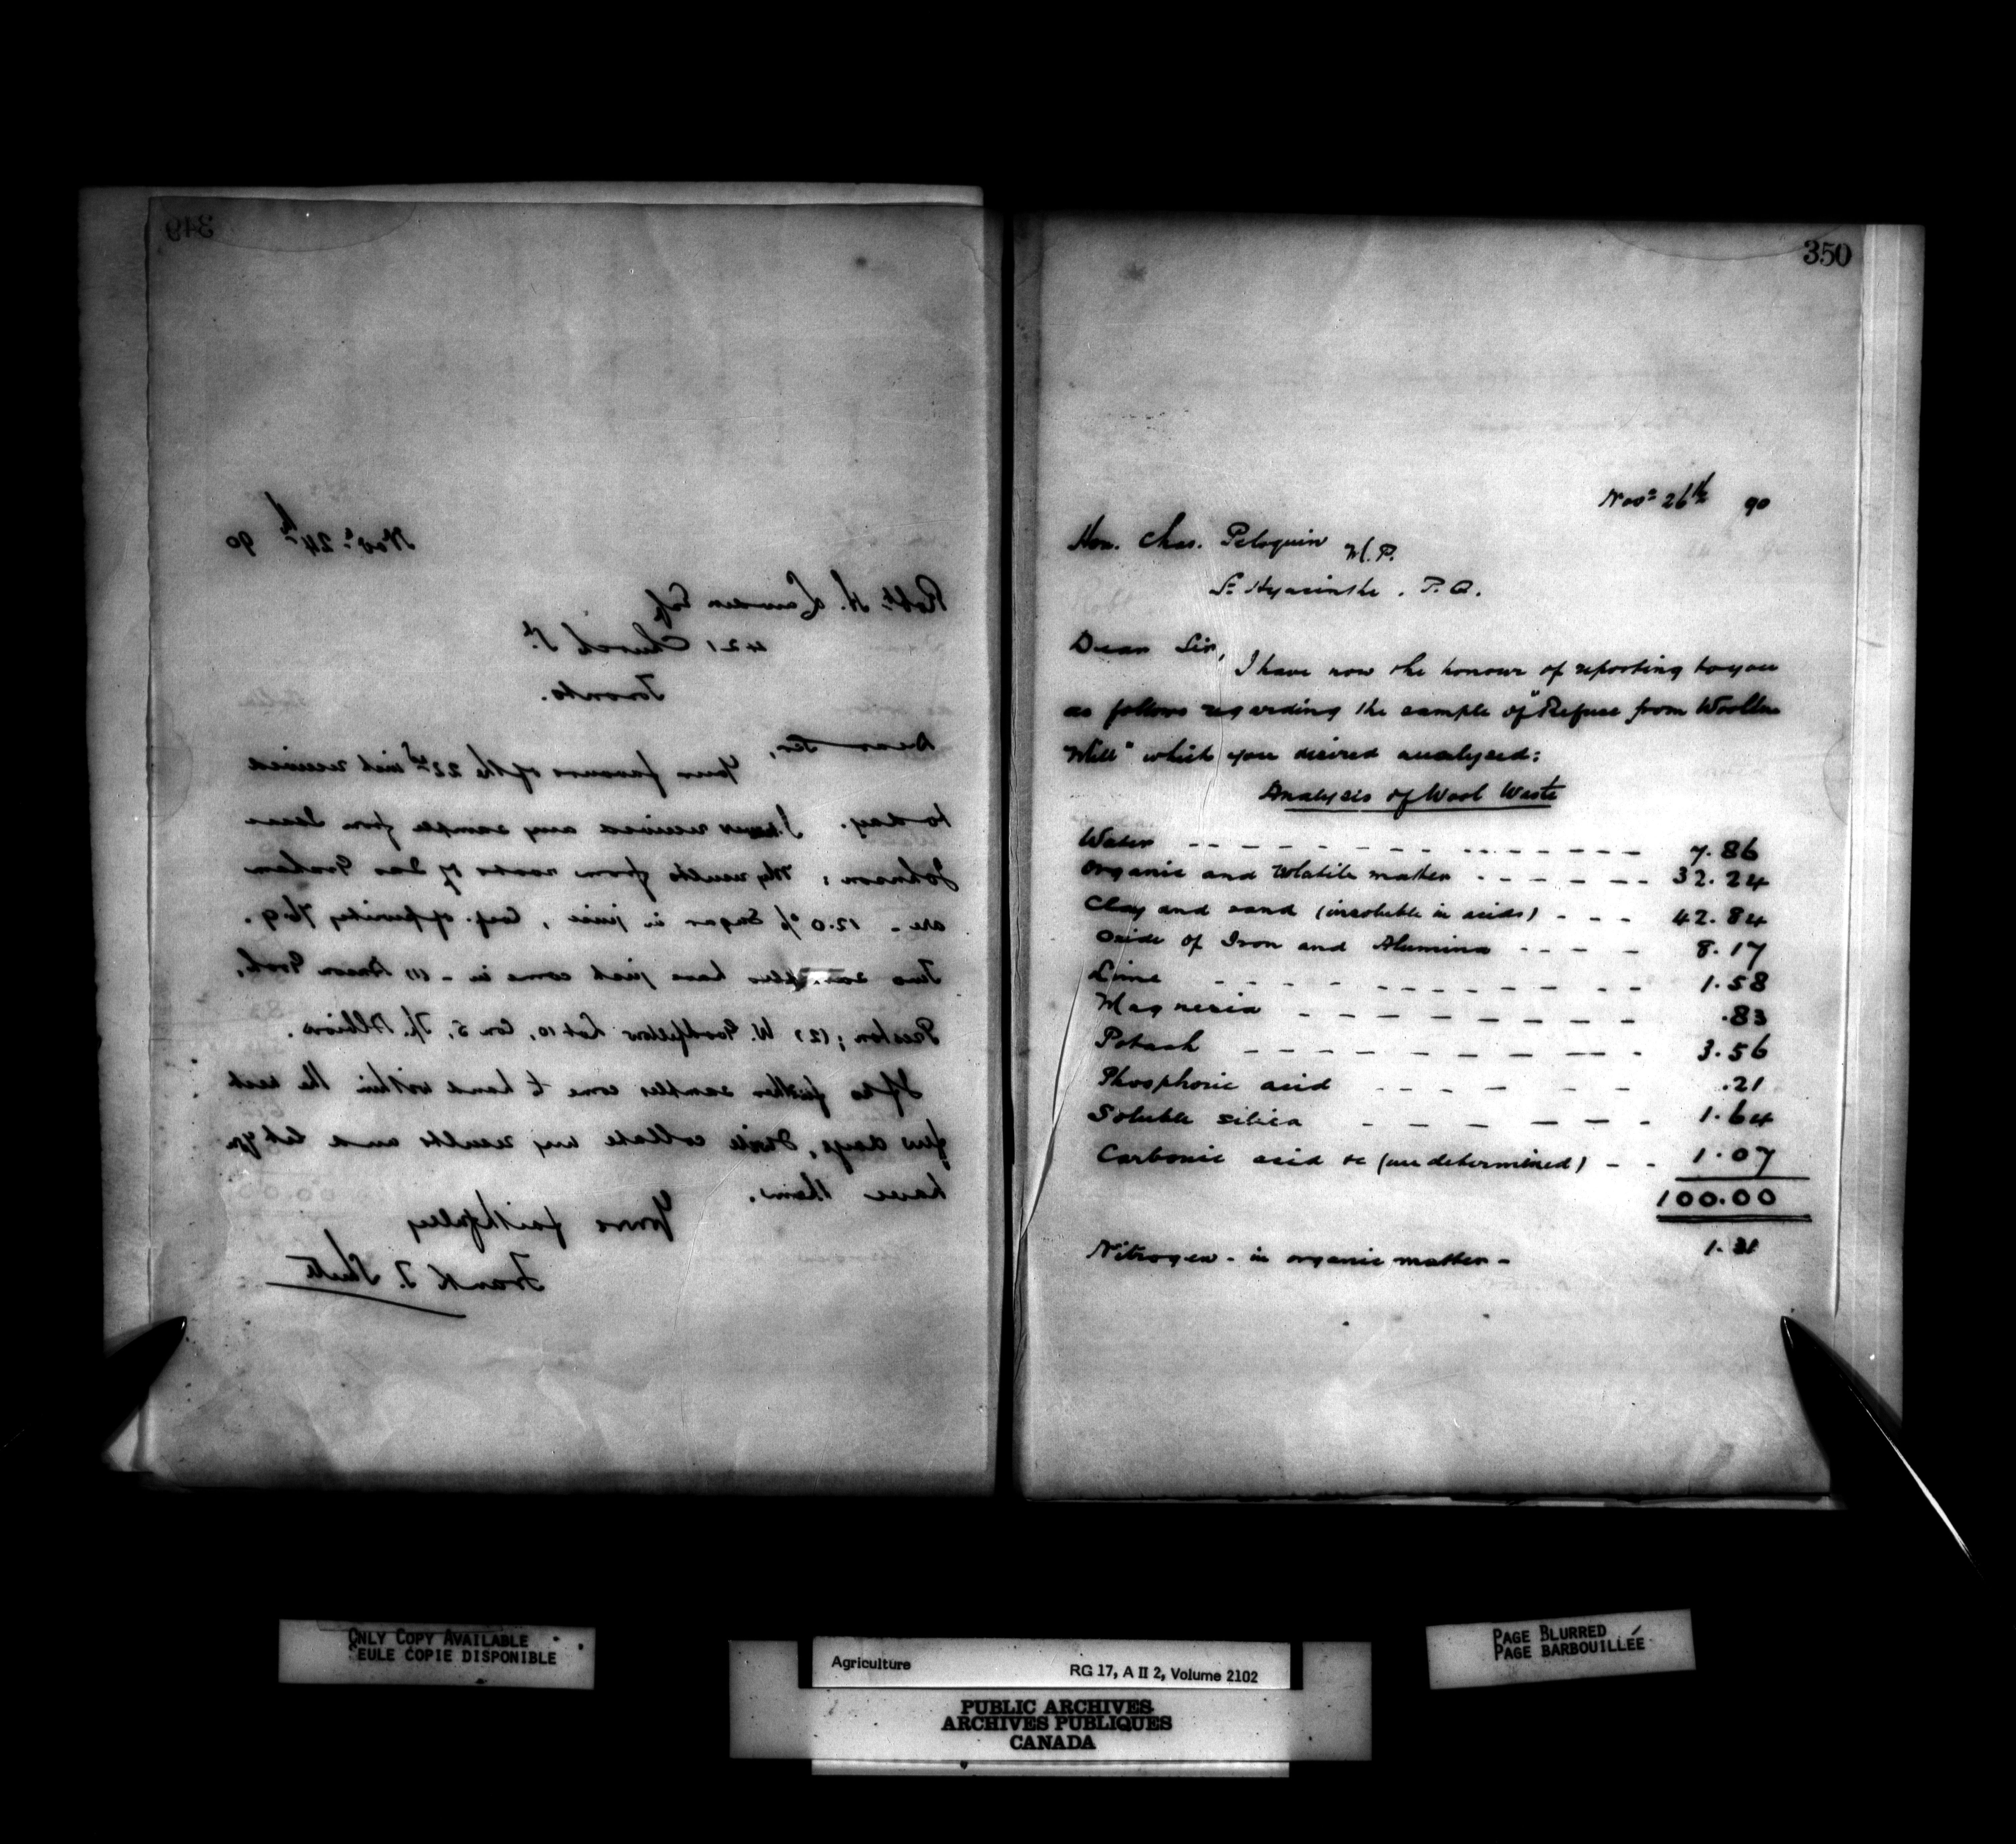 349
Nov. 24th 90
Robt. H. Lawder Esq
421 Church St.
Toronto.
Dear Sir,
Your favour of the 22nd inst received
to day. I never received any sample from Isaac
Johnson; My results from roots of Jas Graham
are - 12.0% Sugar in juice, Coef. of purity 76.9.
Two samples have just come in - (1) Groh,
Preston; (2) W. Goodfellow Lot 10, Con 5, Tp. Albion.
If no further samples come to hand within the next
few days, I will collate my results and let you
have them.
Yours faithfully
Frank T. Shutt
350
Nov. 26th 90
Hon. Chas. Peloquin M.P.
St Hyacinthe. P.Q.
Dear Sir,
I have now the honour of reporting to you
as follows regarding the sample of "Refuse from Woollen
Mill" which you desired analysed:
Analysis of Wool Waste
Water - - - - - - - - - - - - 7.86
Organic and Volatile matter - - - - - - 32.24
Clay and sand (insoluble in acids) - - - 42.84
Oxide of Iron and Alumina - - - - 8.17
Lime - - - - - - - - - - 1.58
Magnesia - - - - - - - - - .83
Potash - - - - - - - - - - 3.56
Phosphoric acid - - - - - - .21
Soluble silica - - - - - - - 1.64
Carbonic acid &c (undetermined) - - 1.07
100.00
Nitrogen - in organic matter - 1.31
ONLY COPY AVAILABLE
SEULE COPIE DISPONIBLE
PAGE BLURRED
PAGE BARBOUILLÉE
Agriculture RG 17, A II 2, Volume 2102
PUBLIC ARCHIVES
ARCHIVES PUBLIQUES
CANADA